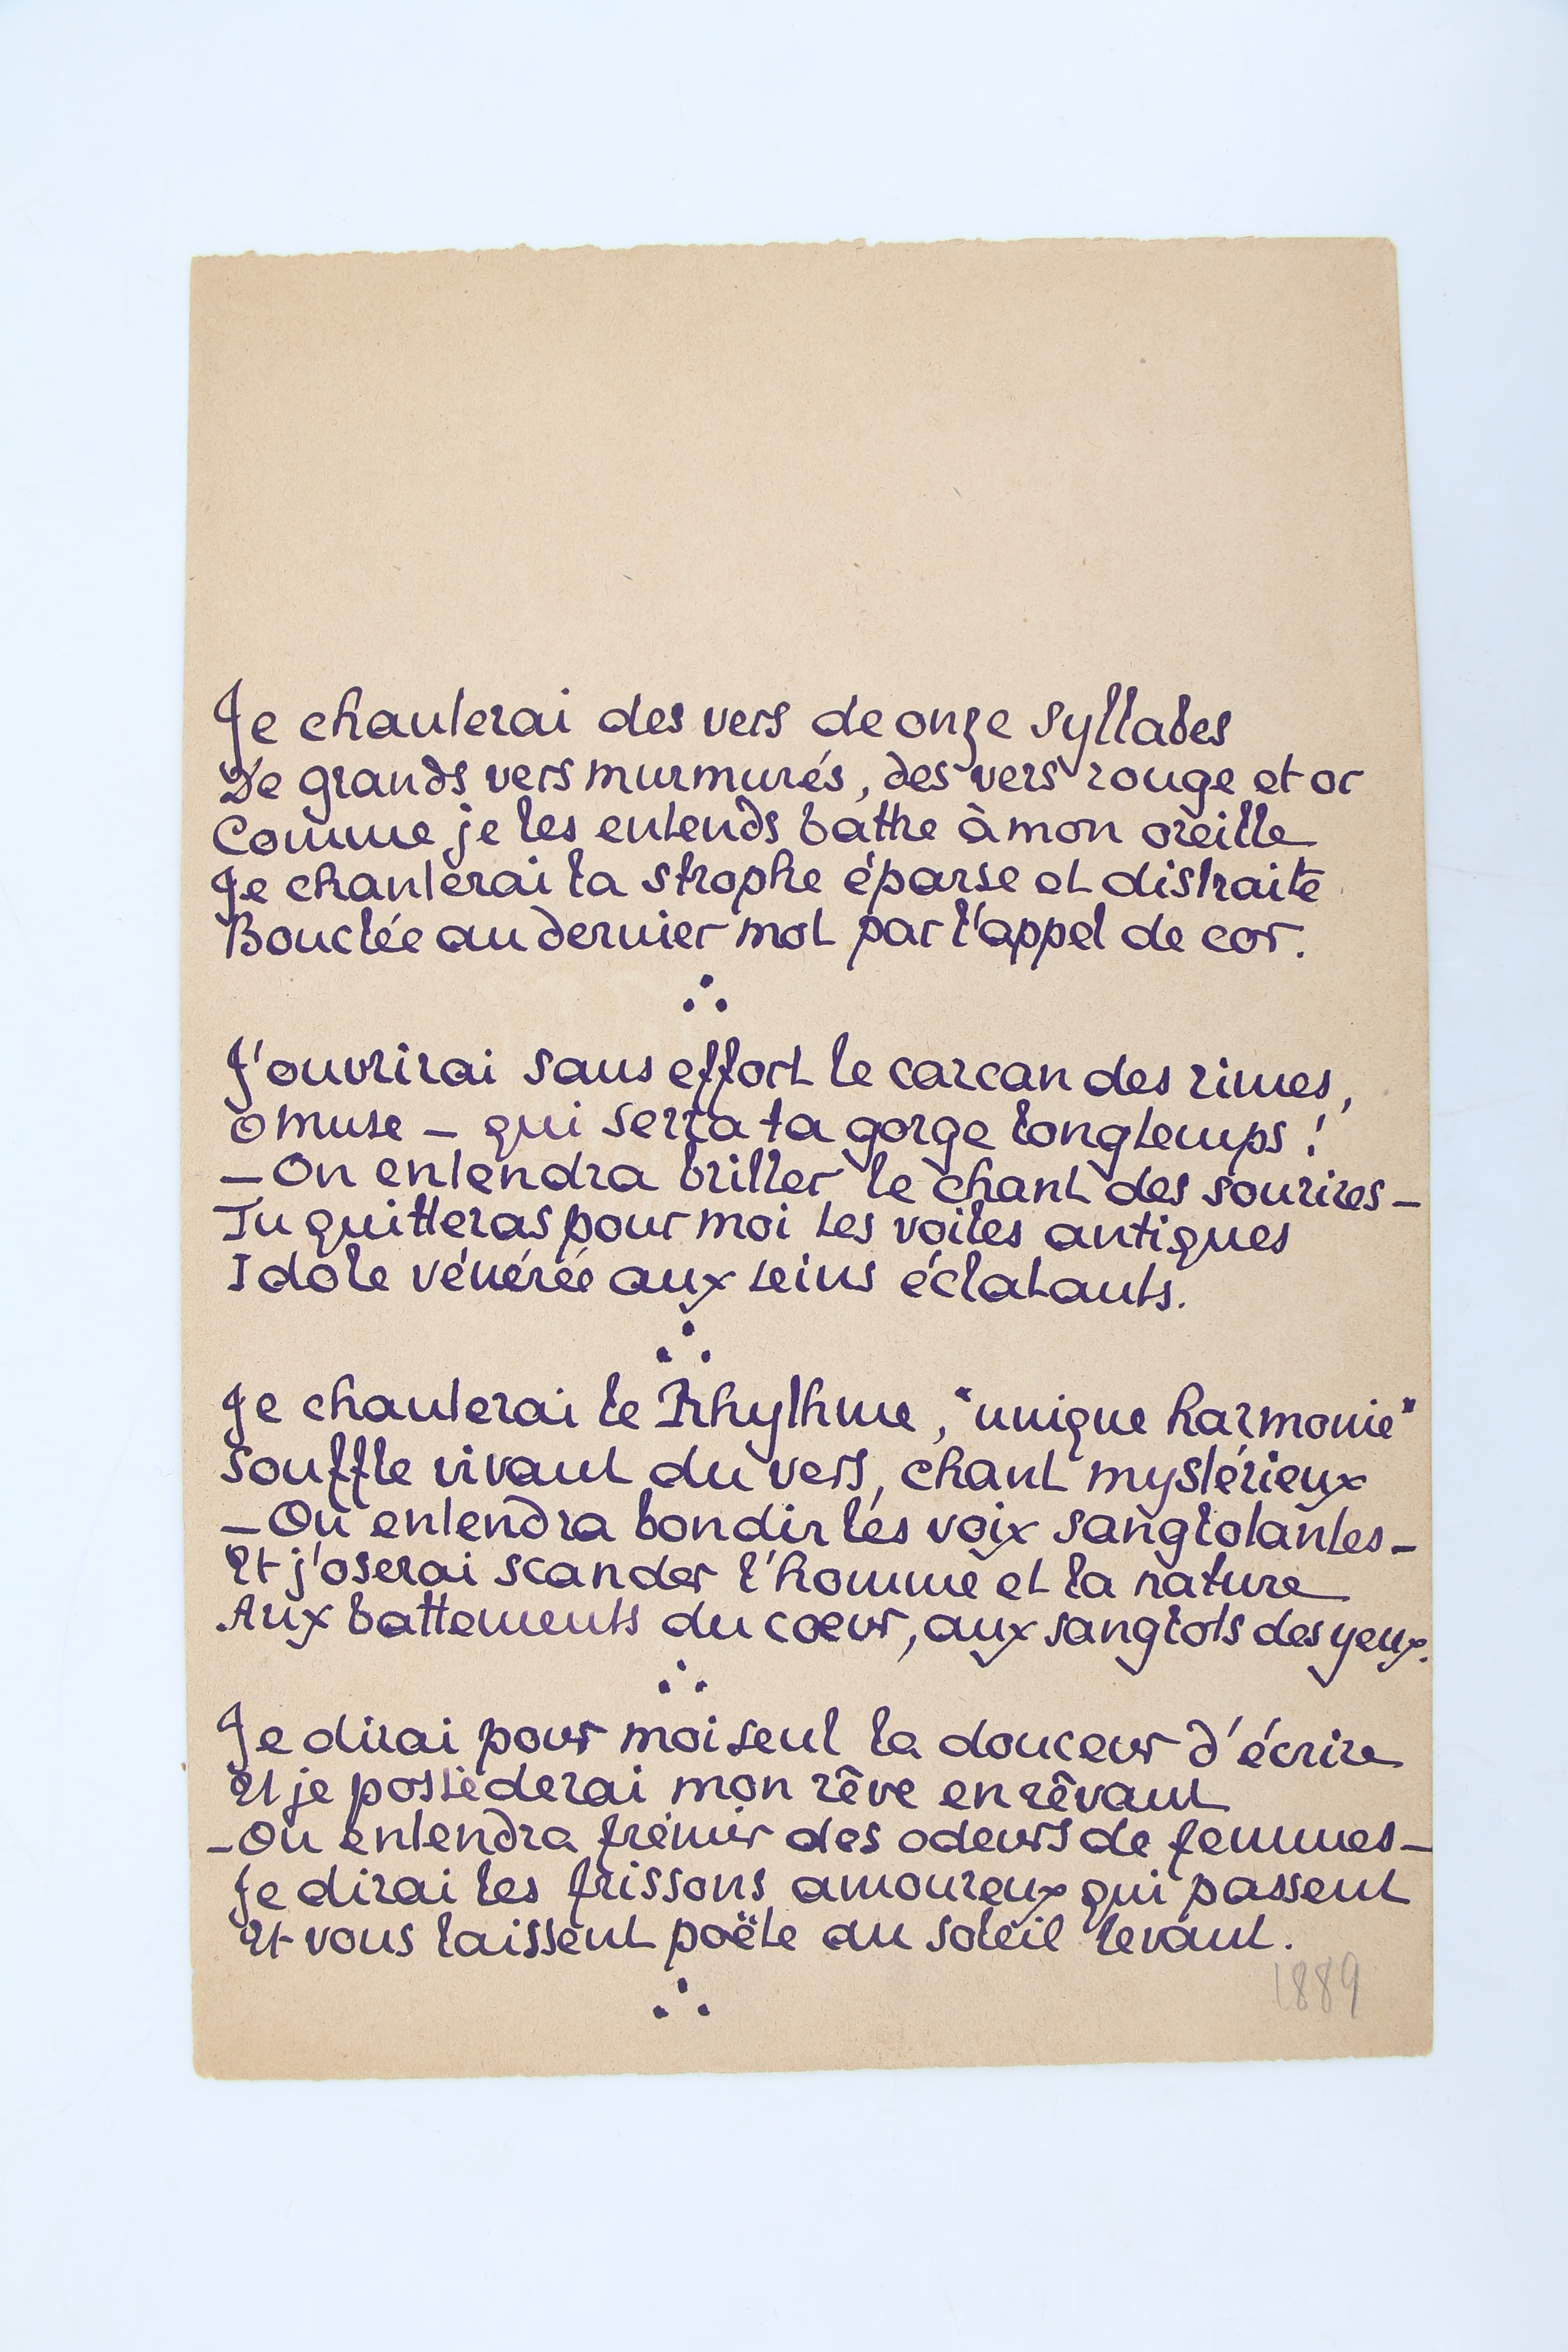 Je chanterai des vers de onze syllabes
De grands vers murmurés, des vers rouge et or
Comme je les entends battre à mon oreille
Je chanterai la strophe éparse et distraite
Bouclée au dernier mot par l'appel de cor.
∴
J'ouvrirai sans effort le carcan des rimes,
ô muse – qui serra ta gorge longtemps !
– On entendra briller le chant des sourires –
Tu quitteras pour moi les voiles antiques
Idole vénérée aux seins éclatants.
∴
Je chanterai le Rhythme, "unique harmonie"
Souffle vivant du vers, chant mystérieux
– On entendra bondir les voix sanglotantes –
Et j'oserai scander l'homme et la nature
Aux battements du cœur, aux sanglots des yeux.
∴
Je dirai pour moi seul la douceur d'écrire
Et je possèderai mon rêve en rêvant
– On entendra frémir des odeurs de femmes –
Je dirai les frissons amoureux qui passent
Et vous laissent poëte au soleil levant.
1889
∴